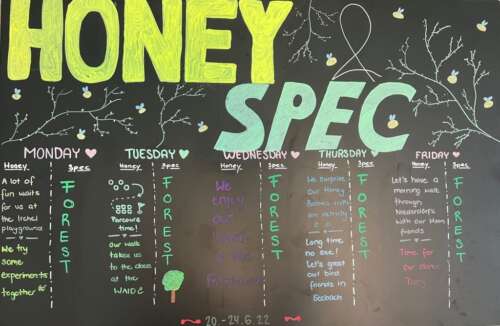 HONEY
SPEC
MONDAY
Honey
Spec
A lot of
fun waits
for us at
the Irchel
playground
We try
some
experiments
together
FOREST
TUESDAY
Honey
Spec
Parcours
time!
our walk
takes us
to the
at the
WAIDE
FOREST
WEDNESDAY
Honey
Spec
We
enjoy
our
FOREST
THURSDAY
Honey
Spec
We surprise
our Honey
with
an activity
Long time
no see!
Let's greet
our bird
friends in
Seebach
FOREST
FRIDAY
Honey
Spec
Let's have a
morning walk
through
with our Mom
friends
Time for
our
FOREST
20.-24.6.22